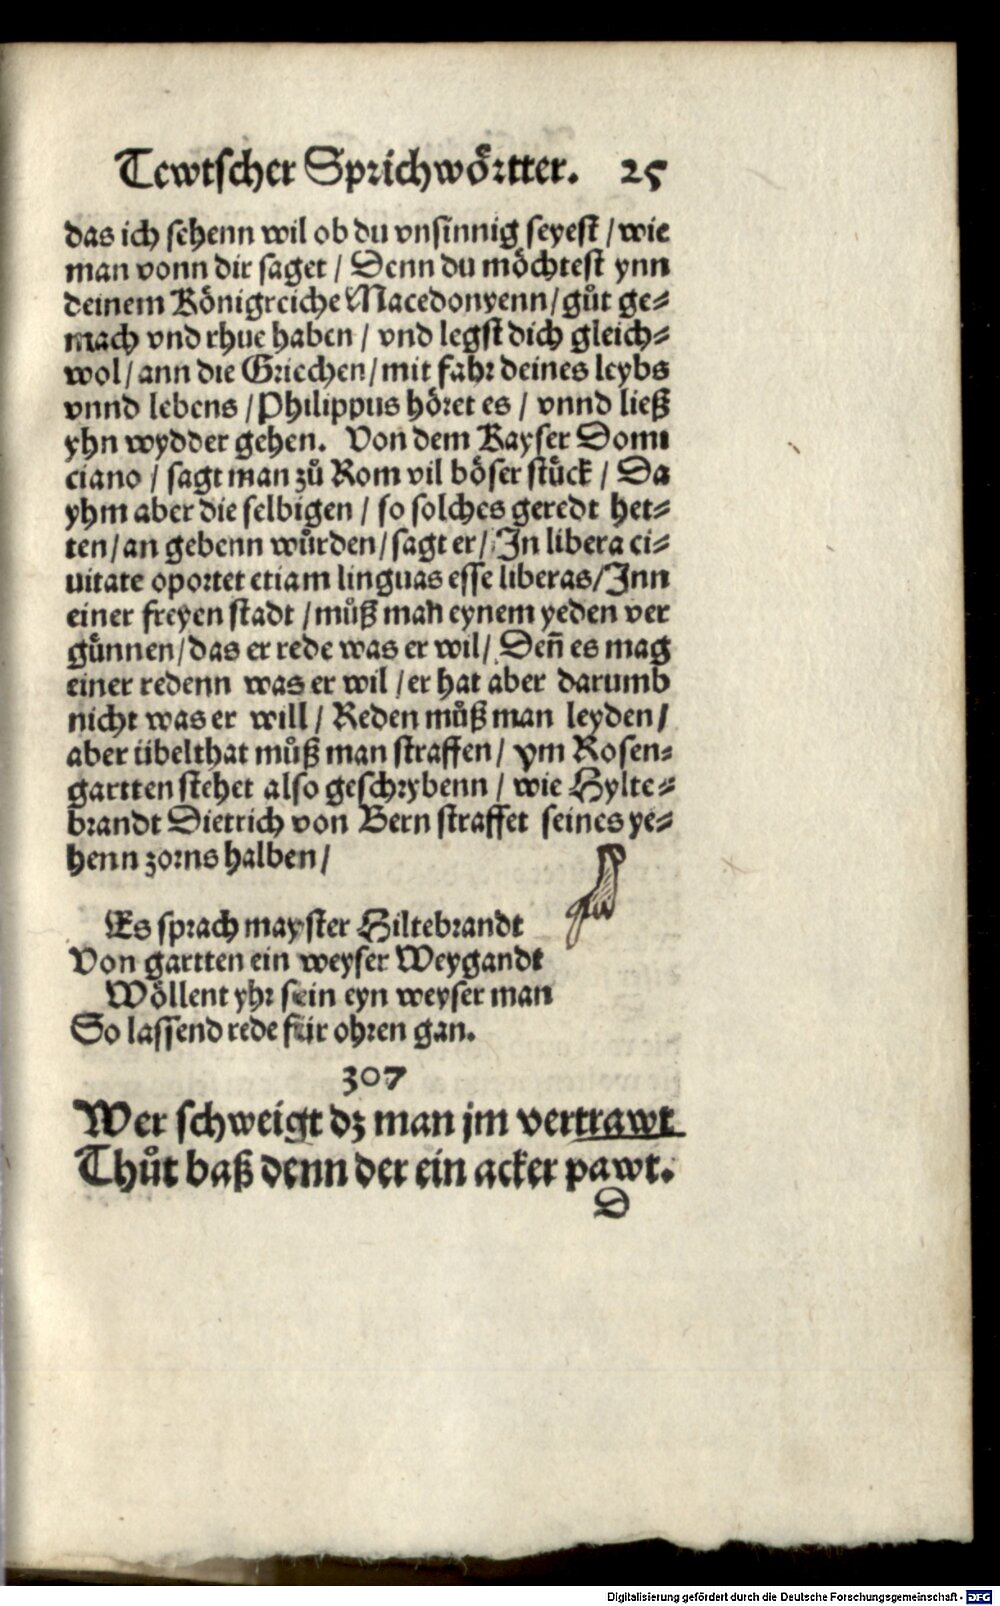 Tewtscher Sprichwoͤrtter. 25
das ich sehenn wil ob du vnsinnig seyest / wie
man vonn dir saget / Denn du moͤchtest ynn
deinem Koͤnigreiche Macedonyenn / guͦt ge⸗
mach vnd rhue haben / vnd legst dich gleich⸗
wol / ann die Griechen / mit fahr deines leybs
vnnd lebens / Philippus hoͤret es / vnnd ließ
yhn wydder gehen. Von dem Kayser Domi
ciano / sagt man zuͦ Rom vil boͤser stuͤck / Da
yhm aber die selbigen / so solches geredt het⸗
ten / an gebenn wuͤrden / sagt er / In libera ci⸗
uitate oportet etiam linguas esse liberas / Inn
einer freyen stadt / muͦß man eynem yeden ver
guͤnnen / das er rede was er wil / Den̄ es mag
einer redenn was er wil / er hat aber darumb
nicht was er will / Reden muͦß man leyden /
aber uͤbelthat muͦß man straffen / ym Rosen⸗
gartten stehet also geschrybenn / wie Hylte⸗
brandt Dietrich von Bern straffet seines ye⸗
henn zorns halben /
Es sprach mayster Hiltebrandt
Von gartten ein weyser Weygandt
Woͤllent yhr sein eyn weyser man
So lassend rede fuͤr ohren gan.
307
Wer schweigt dz man jm vertrawt
Thuͦt baß denn der ein acker pawt.
D
Digitalisierung gefördert durch die Deutsche Forschungsgemeinschaft - DFG